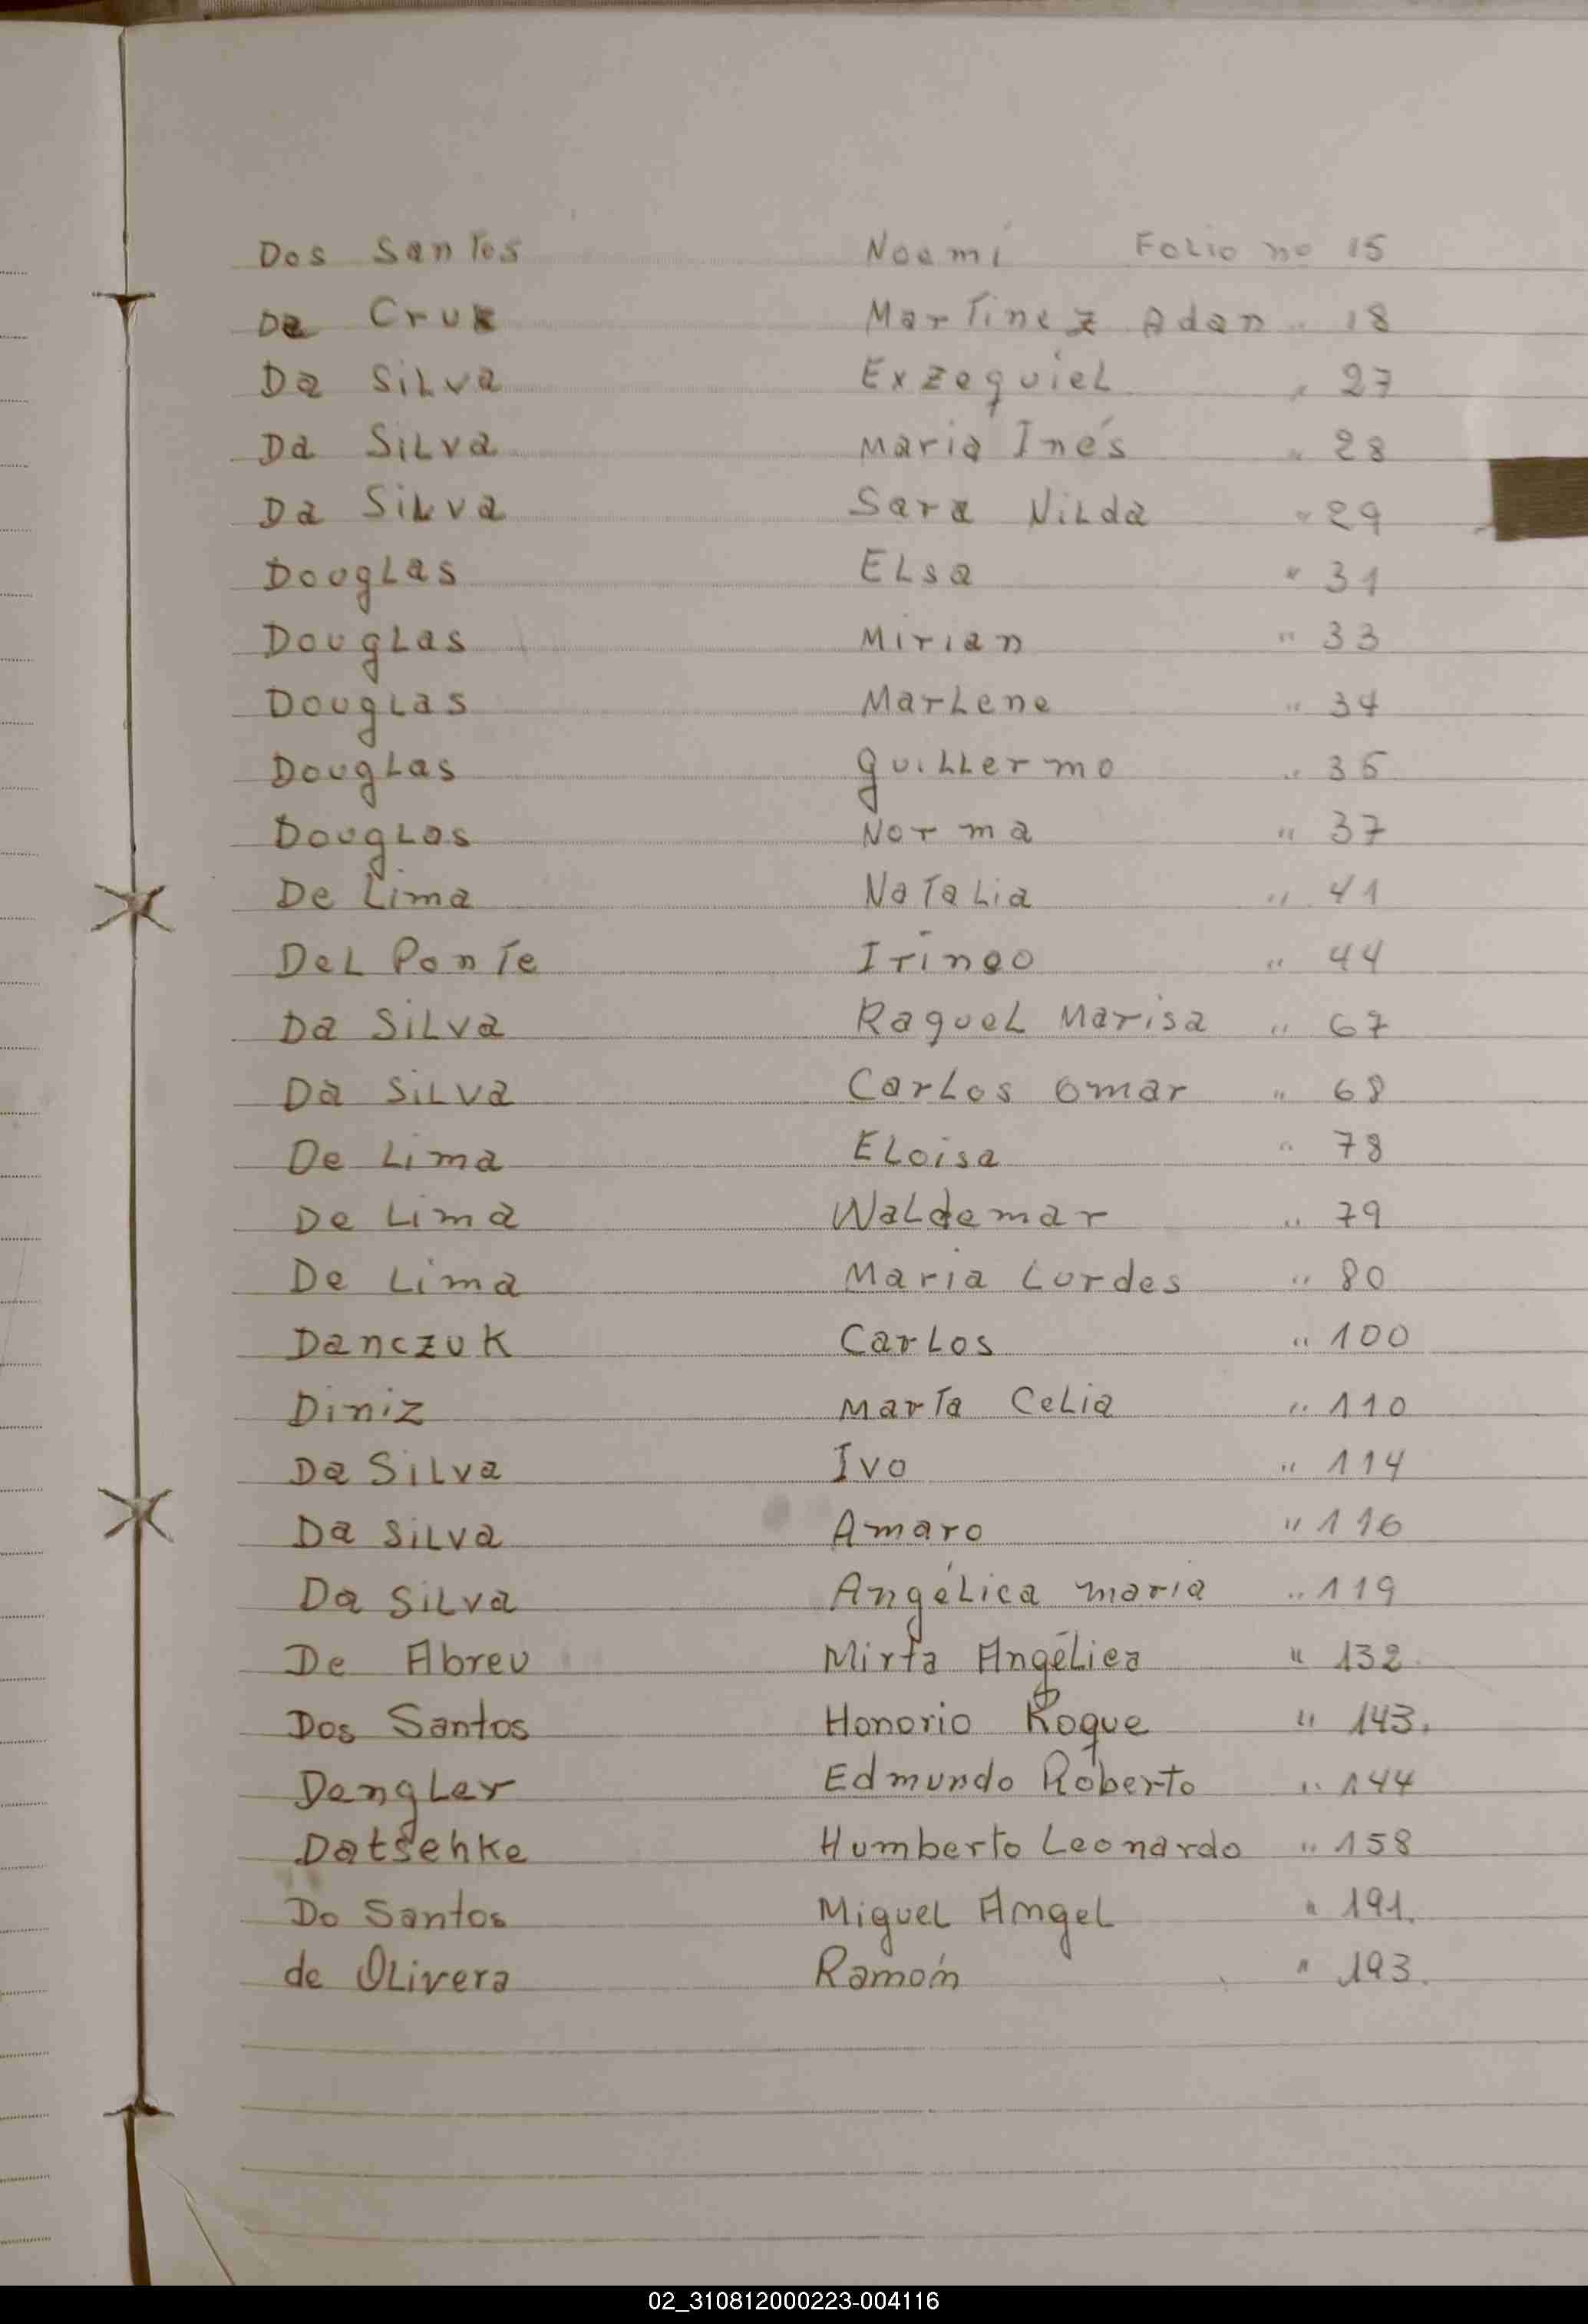 Dos Santos Noemi Folio no 15
Da Cruz Martinez Adan " 18
Da Silva Exzequiel " 27
Da Silva Maria Inés " 28
Da Silva Sara Nilda " 29
Douglas Elsa " 31
Douglas Mirian " 33
Douglas Marlene " 34
Douglas Guillermo " 35
Douglas Norma " 37
De Lima Natalia " 41
Del Ponte Irineo " 44
Da Silva Raquel Marisa " 67
Da Silva Carlos Omar " 68
De Lima Eloisa " 78
De Lima Waldemar " 79
De Lima Maria Lurdes " 80
Danczuk Carlos " 100
Diniz Marta Celia " 110
Da Silva Ivo " 114
Da Silva Amaro " 116
Da Silva Angélica Maria " 119
De Abreu Mirta Angélica " 132
Dos Santos Honorio Roque " 143.
Dengler Edmundo Roberto " 144
Datsehke Humberto Leonardo " 158
Do Santos Miguel Angel " 191.
de Olivera Ramón " 193.
02_310812000223-004116